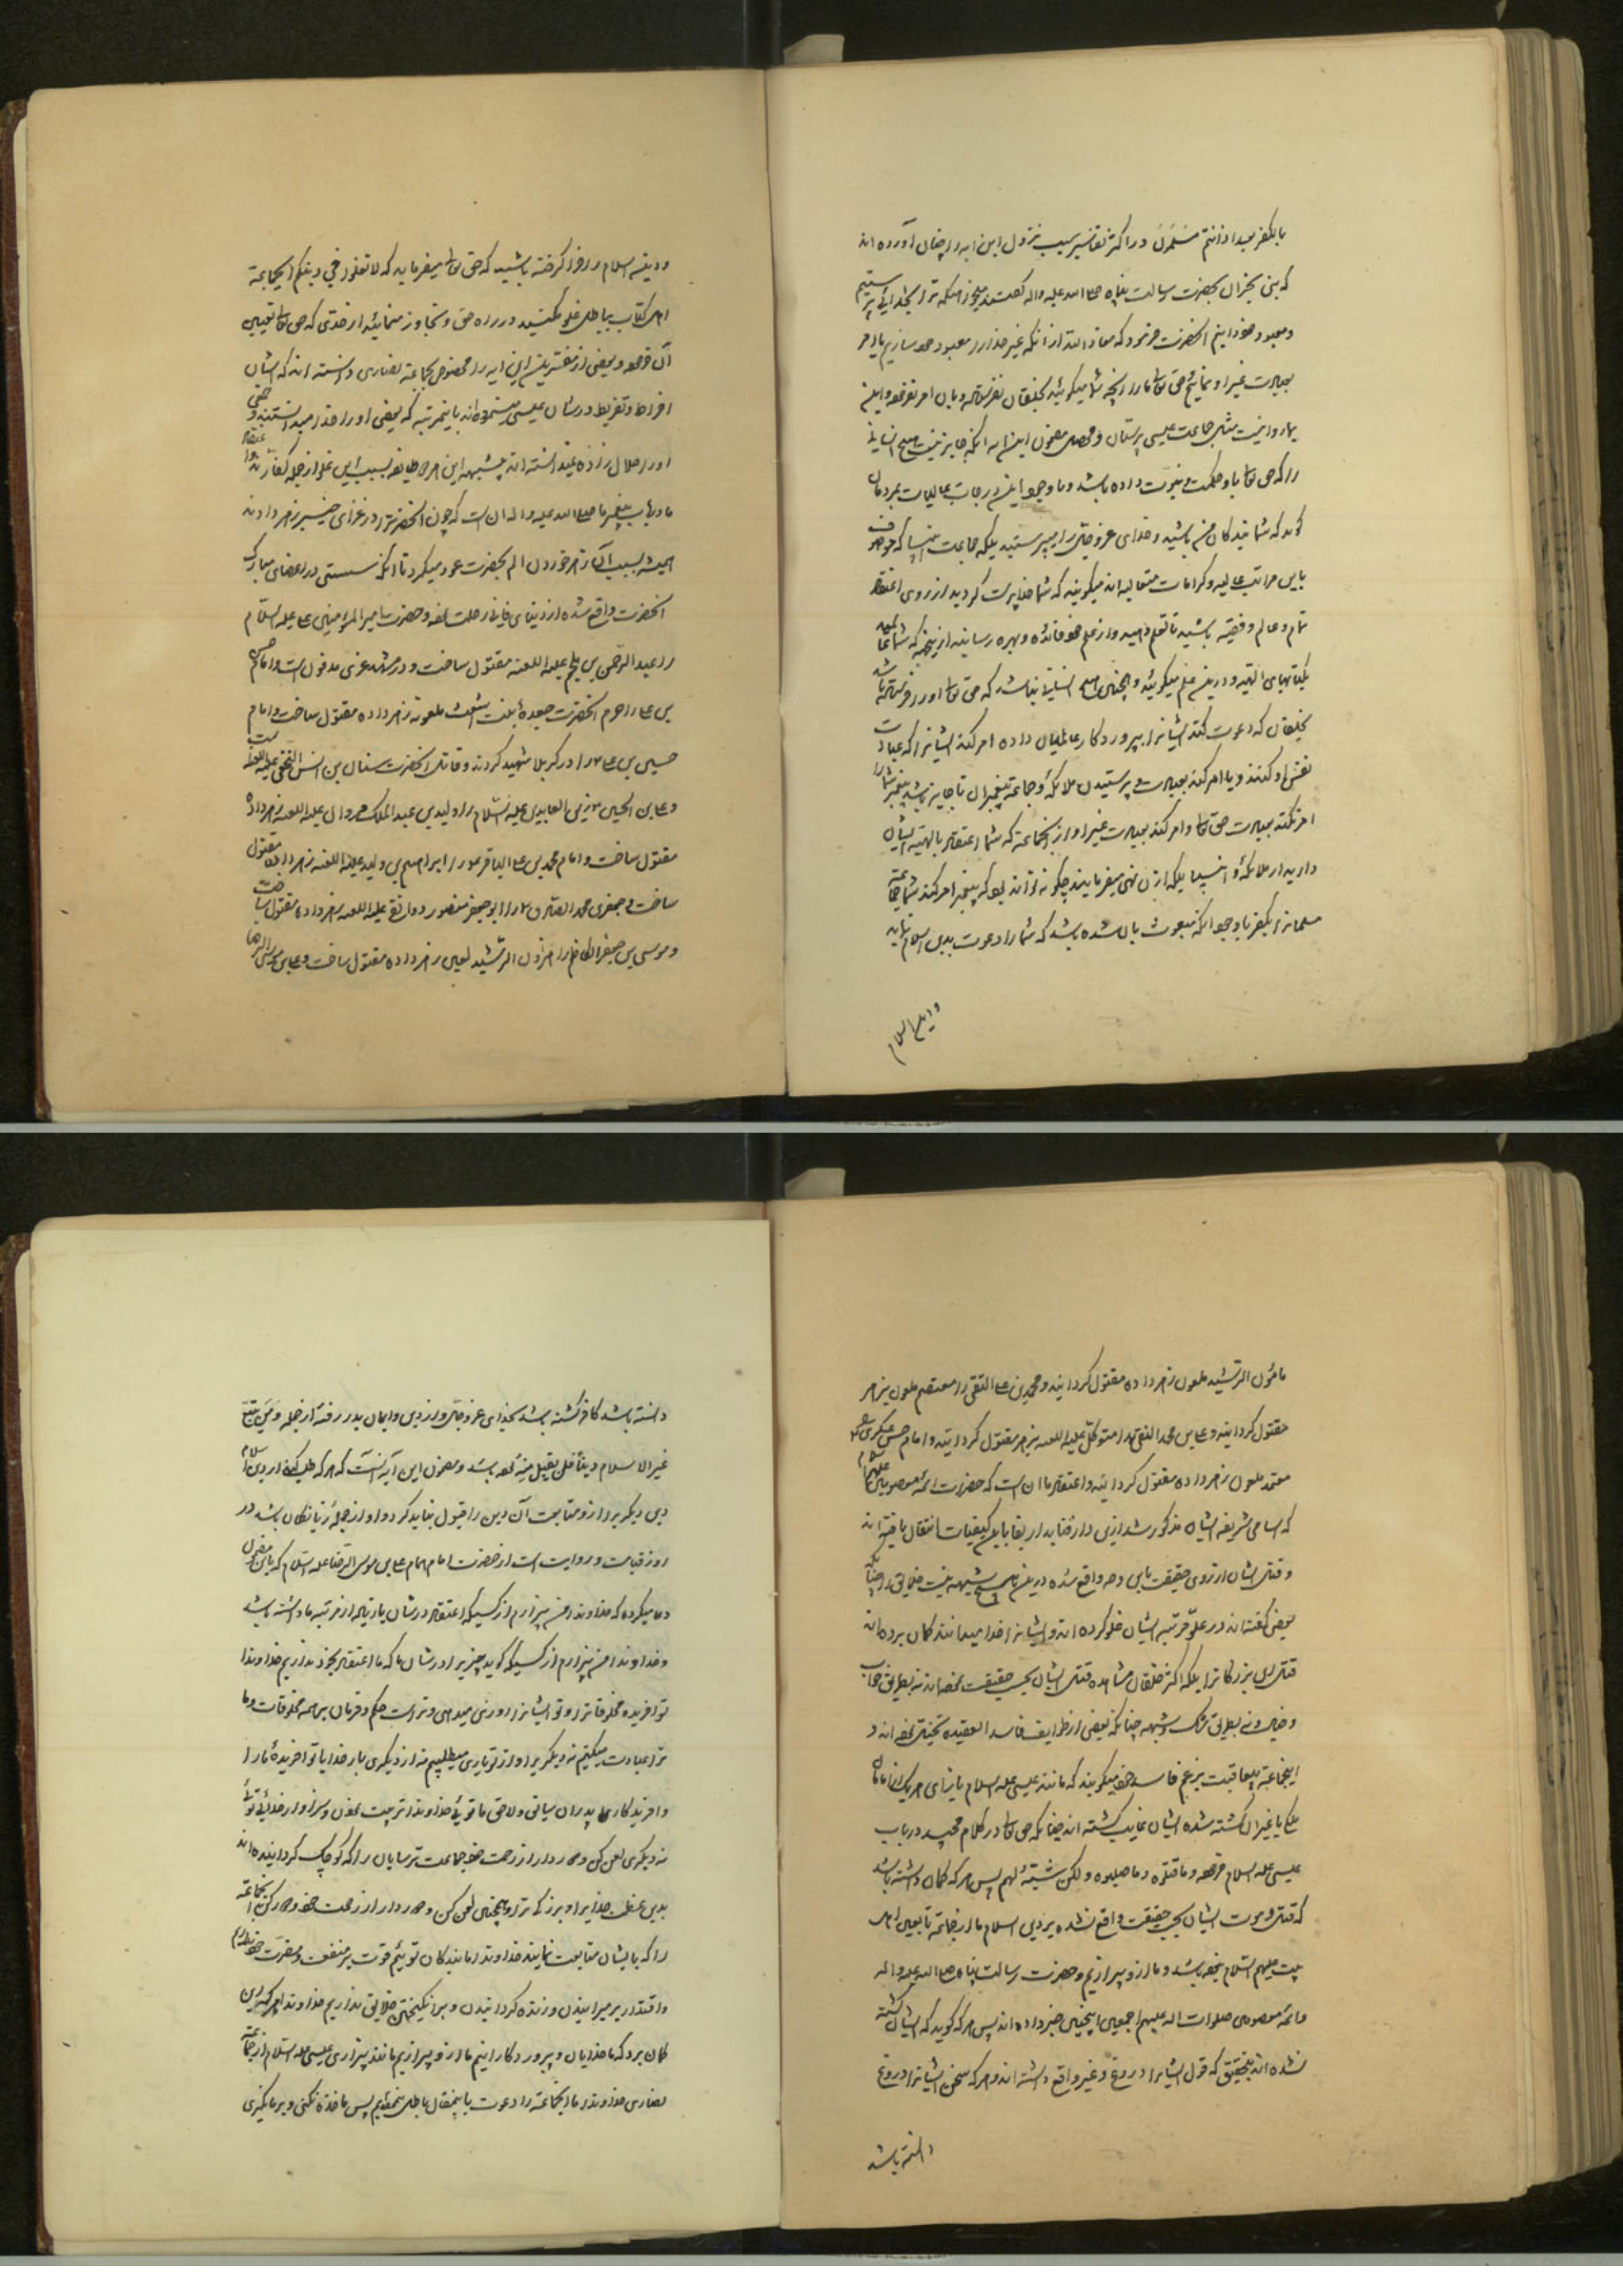 بالکفر بعد اذ انتم مسلمون و در اکثر تفاسیر سبب نزول این ایه را چنان آورده اند
که بنی نجران بحضرت رسالت پناه صلی الله علیه واله گفتند میخواهی که ترا بخدائی پرستیم
و معبود خود دانیم انحضرت فرمود که معاذ الله از انکه غیر خدا را معبود خود سازیم یا امر
بعبادت غیر او نمائیم حق تعالی ما را انچه شما میگوئید بخلقان نفرستاده و بان امر نفرموده و این
را که حق تعالی باو حکمت و نبوت داده باشد و با وجود این درجات عالیات بمردمان
گوید که شما بندگان من باشید و خدای عزوجل را مپرستید بلکه جماعت انبیا که موصوف
باین مراتب عالیه و کرامات متعالیه اند میگویند که شما خداپرست گردید از روی اعتقاد
تمام و عالم و فقیه باشید تا تعلیم دهید و از علم خود فائده و بهره رسانید از اینجهة که شما عالمید
بکتابهای الهیه و درین علم میگوئید و همچنین هیچ انسانی نباشد که حق تعالی او را فرستاده باشد
بخلقان که دعوت کند ایشانرا بپروردگار عالمیان و امر کند ایشانرا که عبادت
نفس او کنند و یا امر کند بعبادت و پرستیدن ملائکه و جماعة پیغمبران تا جایز باشد پیغمبر شما را
امر نکند بعبادت حق تعالی و امر کند بعبادت غیر او از انجماعة که شما اعتقاد بالهیة ایشان
دارید از ملائکه و انبیا بلکه از ان نهی میفرمایند چگونه تواند بود که پیغمبر امر کند شما جماعة
مسلمانرا بکفر با وجود انکه مبعوث بان شده باشد که شما را دعوت بدین اسلام نماید
و دین اسلام
و دین اسلام را فرا گرفته باشید که حق تعالی میفرماید که لا تغلوا فی دینکم ایجماعة
اهل کتاب بباطل غلو مکنید در راه حق و تجاوز منمائید از حدی که حق تعالی تعیین
آن فرموده و بعضی از مفسرین این ایه را مخصوص بجماعة نصاری دانسته اند که ایشان
افراط و تفریط در شان عیسی نموده اند باینمرتبه که بعضی او را خدا میدانستند و بعضی
او را حلال زاده نمیدانسته اند بیشبهه این هر دو طایفه بسبب این غلو از جمله کفارند و اعتقاد
ما در باب پیغمبر ما صلی الله علیه واله ان است که چون انحضرترا در غزای خیبر زهر دادند
همیشه بسبب آن زهر خوردن الم بحضرت عود میکرد تا انکه سستی در اعضای مبارک
انحضرت واقع شده از دنیای فانی رحلت نمود و حضرت امیر المؤمنین علی علیه السلام
را عبدالرحمن بن ملجم علیه اللعنه مقتول ساخت و در مشهد غری مدفون است و امام حسن
بن علی را حرم انحضرت جعده بنت اشعث ملعونه زهر داده مقتول ساخت و امام
حسین بن علی را در کربلا شهید کردند و قاتل انحضرت سنان بن انس النخعی علیه اللعنه است
و علی بن الحسین زین العابدین علیه السلام را ولید بن عبدالملک مروان علیه اللعنه زهر داده
مقتول ساخت و امام محمد بن علی الباقر را ابراهیم بن ولید علیه اللعنه زهر داده مقتول
ساخت و جعفر بن محمد الصادق را ابو جعفر منصور دوانقی علیه اللعنه زهر داده مقتول ساخت
و موسی بن جعفر الکاظم را هرون الرشید لعین زهر داده مقتول ساخت و علی بن موسی الرضا
مامون الرشید ملعون زهر داده مقتول گردانید و محمد بن علی التقی را معتصم ملعون بزهر
مقتول گردانید و علی بن محمد النقی را متوکل علیه اللعنه بزهر مقتول گردانید و امام حسن عسکری
معتمد ملعون زهر داده مقتول گردانید و اعتقاد ما ان است که حضرات ائمه معصومین علیهم السلام
که اسامی شریفه ایشان مذکور شد ازین دار فنا بدار بقا باین کیفیات انتقال یافته اند
و قتل ایشان از روی حقیقت باین وجه واقع شده درین باب هیچ شبهه نیست خلایق را چنانکه
بعضی گفته اند در علو مرتبه ایشان غلو کرده اند و ایشانرا خدا میدانند گمان برده اند
قتل این بزرگانرا بلکه اکثر خلقان مشاهده قتل ایشان بحسب حقیقت نموده اند نه بطریق خواب
و خیال و نه بطریق شک و شبهه چنانکه بعضی از طرایف فاسد العقیده تخیل نموده اند و
اینجماعة بیعاقبت بزعم فاسد خود میگویند که مانند عیسی علیه السلام بازای هر یک از امامان
ما غیر ان کشته شده ایشان غایب گشته اند چنانکه حق تعالی در کلام مجید در باب
عیسی علیه السلام فرموده و ما قتلوه و ما صلبوه و لکن شبه لهم پس هر که گمان داشته باشد
که قتل و موت ایشان بحسب حقیقت واقع نشده بر دین اسلام ما از جماعة تابعین اهل
بیت علیهم السلام نبوده باشد و ما از او بیزاریم و حضرت رسالت پناه صلی الله علیه واله
و ائمه معصومین صلوات الله علیهم اجمعین اینچنین خبر داده اند پس هر که گوید که ایشان کشته
نشده اند بتحقیق که قول ایشانرا دروغ و غیر واقع دانسته اند و هر که سخن ایشانرا دروغ
دانسته باشد
دانسته باشد کافر گشته باشد بخدای عزوجل و از دین و ایمان بدر رفته از جمله و من یبتغ
غیر الاسلام دیناً فلن یقبل منه بوده باشد و مضمون این آیه آنست که هر که طلب کند از دین اسلام
دین دیگر را از و متابعت آن دین را قبول نباید کرد و او از جمله زیانکاران باشد در
روز قیامت و روایت است از حضرت امام همام علی بن موسی الرضا علیه السلام که باین مضمون
دعا میکرده که خداوندا من بیزارم از کسیکه اعتقاد در شان ما زیاده از مرتبه ما داشته باشد
و خداوندا من بیزارم از کسیکه گوید چیزیرا در شان ما که ما اعتقاد بخود نداریم خداوندا
تو افریده مخلوقاترا و تو ایشانرا روزی میدهی و تراست حکم و فرمان بر همه مخلوقات و ما
ترا عبادت میکنیم نه دیگریرا و از تو یاری میطلبیم نه از دیگری بار خدایا تو افریدهٔ ما را
و افریدگار پدران سابق و لاحق ما توئی خداوندا تربیت نمودن و سزاوار خدائی توئی
نه دیگری لعن کن و دور دار از رحمت خود جماعت ترسایان را که کوچک گردانیده اند
بدین عظمت خدایرا و بزرگی ترا و همچنین لعن کن و دور دار از رحمت خود هر کس انجماعة
را که بایشان متابعت نمایند خداوندا ما بندگان توئیم قوت بر منفعت و مضرت خود نداریم
و اقتدار بر میرانیدن و زنده گردانیدن و برانگیختن خلایق نداریم خداوندا هر که این
گمان برد که ما خدایان و پروردگارانیم ما از او بیزاریم مانند بیزاری عیسی علیه السلام از جماعة
نصاری خداوندا ما انجماعة را دعوت باینمقال باطل ننموده ایم پس مؤاخذه نکنی و بر ما نگیری